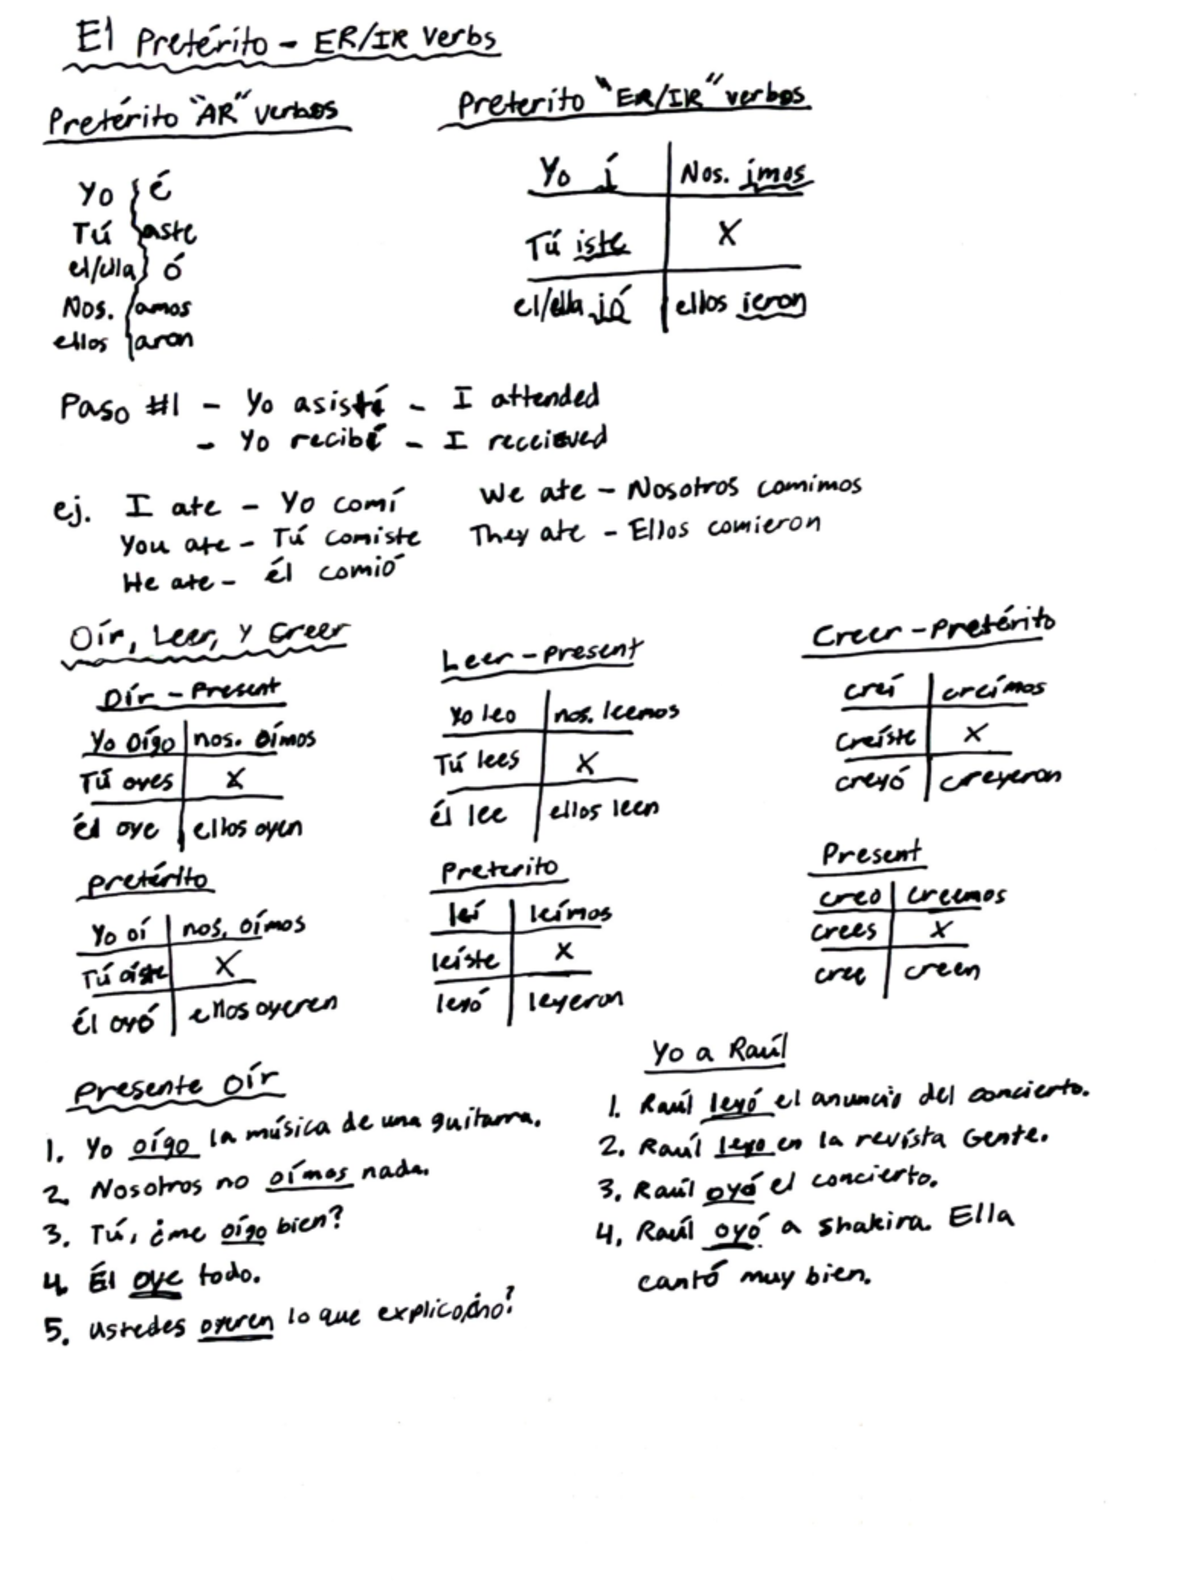 El Pretérito - ER/IR Verbs
Pretérito "AR" verbos
Yo é
Tú aste
el/ella ó
Nos. amos
ellos aron
Preterito "ER/IR" verbos
Yo í Nos. imos
Tú iste X
el/ella ió ellos ieron
Paso #1 - Yo asistí - I attended
- Yo recibí - I recieved
ej. I ate - Yo comí We ate - Nosotros comimos
You ate - Tú comiste They ate - Ellos comieron
He ate - él comió
Oír, Leer, y Creer
Oír - Present
Yo oígo nos. oímos
Tú oyes X
él oye ellos oyen
Pretérito
Yo oí nos. oímos
Tú oíste X
Él oyó ellos oyeren
Leer - present
Yo leo nos. leemos
Tú lees X
él lee ellos leen
Preterito
leí leímos
leíste X
leyó leyeron
Creer - Pretérito
creí creímos
creíste X
creyó creyeron
Present
creo creemos
crees X
cree creen
Presente oír
1. Yo oígo la música de una guitarra.
2. Nosotros no oímos nada.
3. Tú, ¿me oígo bien?
4. Él oye todo.
5. Ustedes oyeren lo que explico, ¿no?
Yo a Raúl
1. Raúl leyó el anuncio del concierto.
2. Raúl leyo en la revísta Gente.
3. Raúl oyó el concierto.
4. Raúl oyó a Shakira. Ella
cantó muy bien.